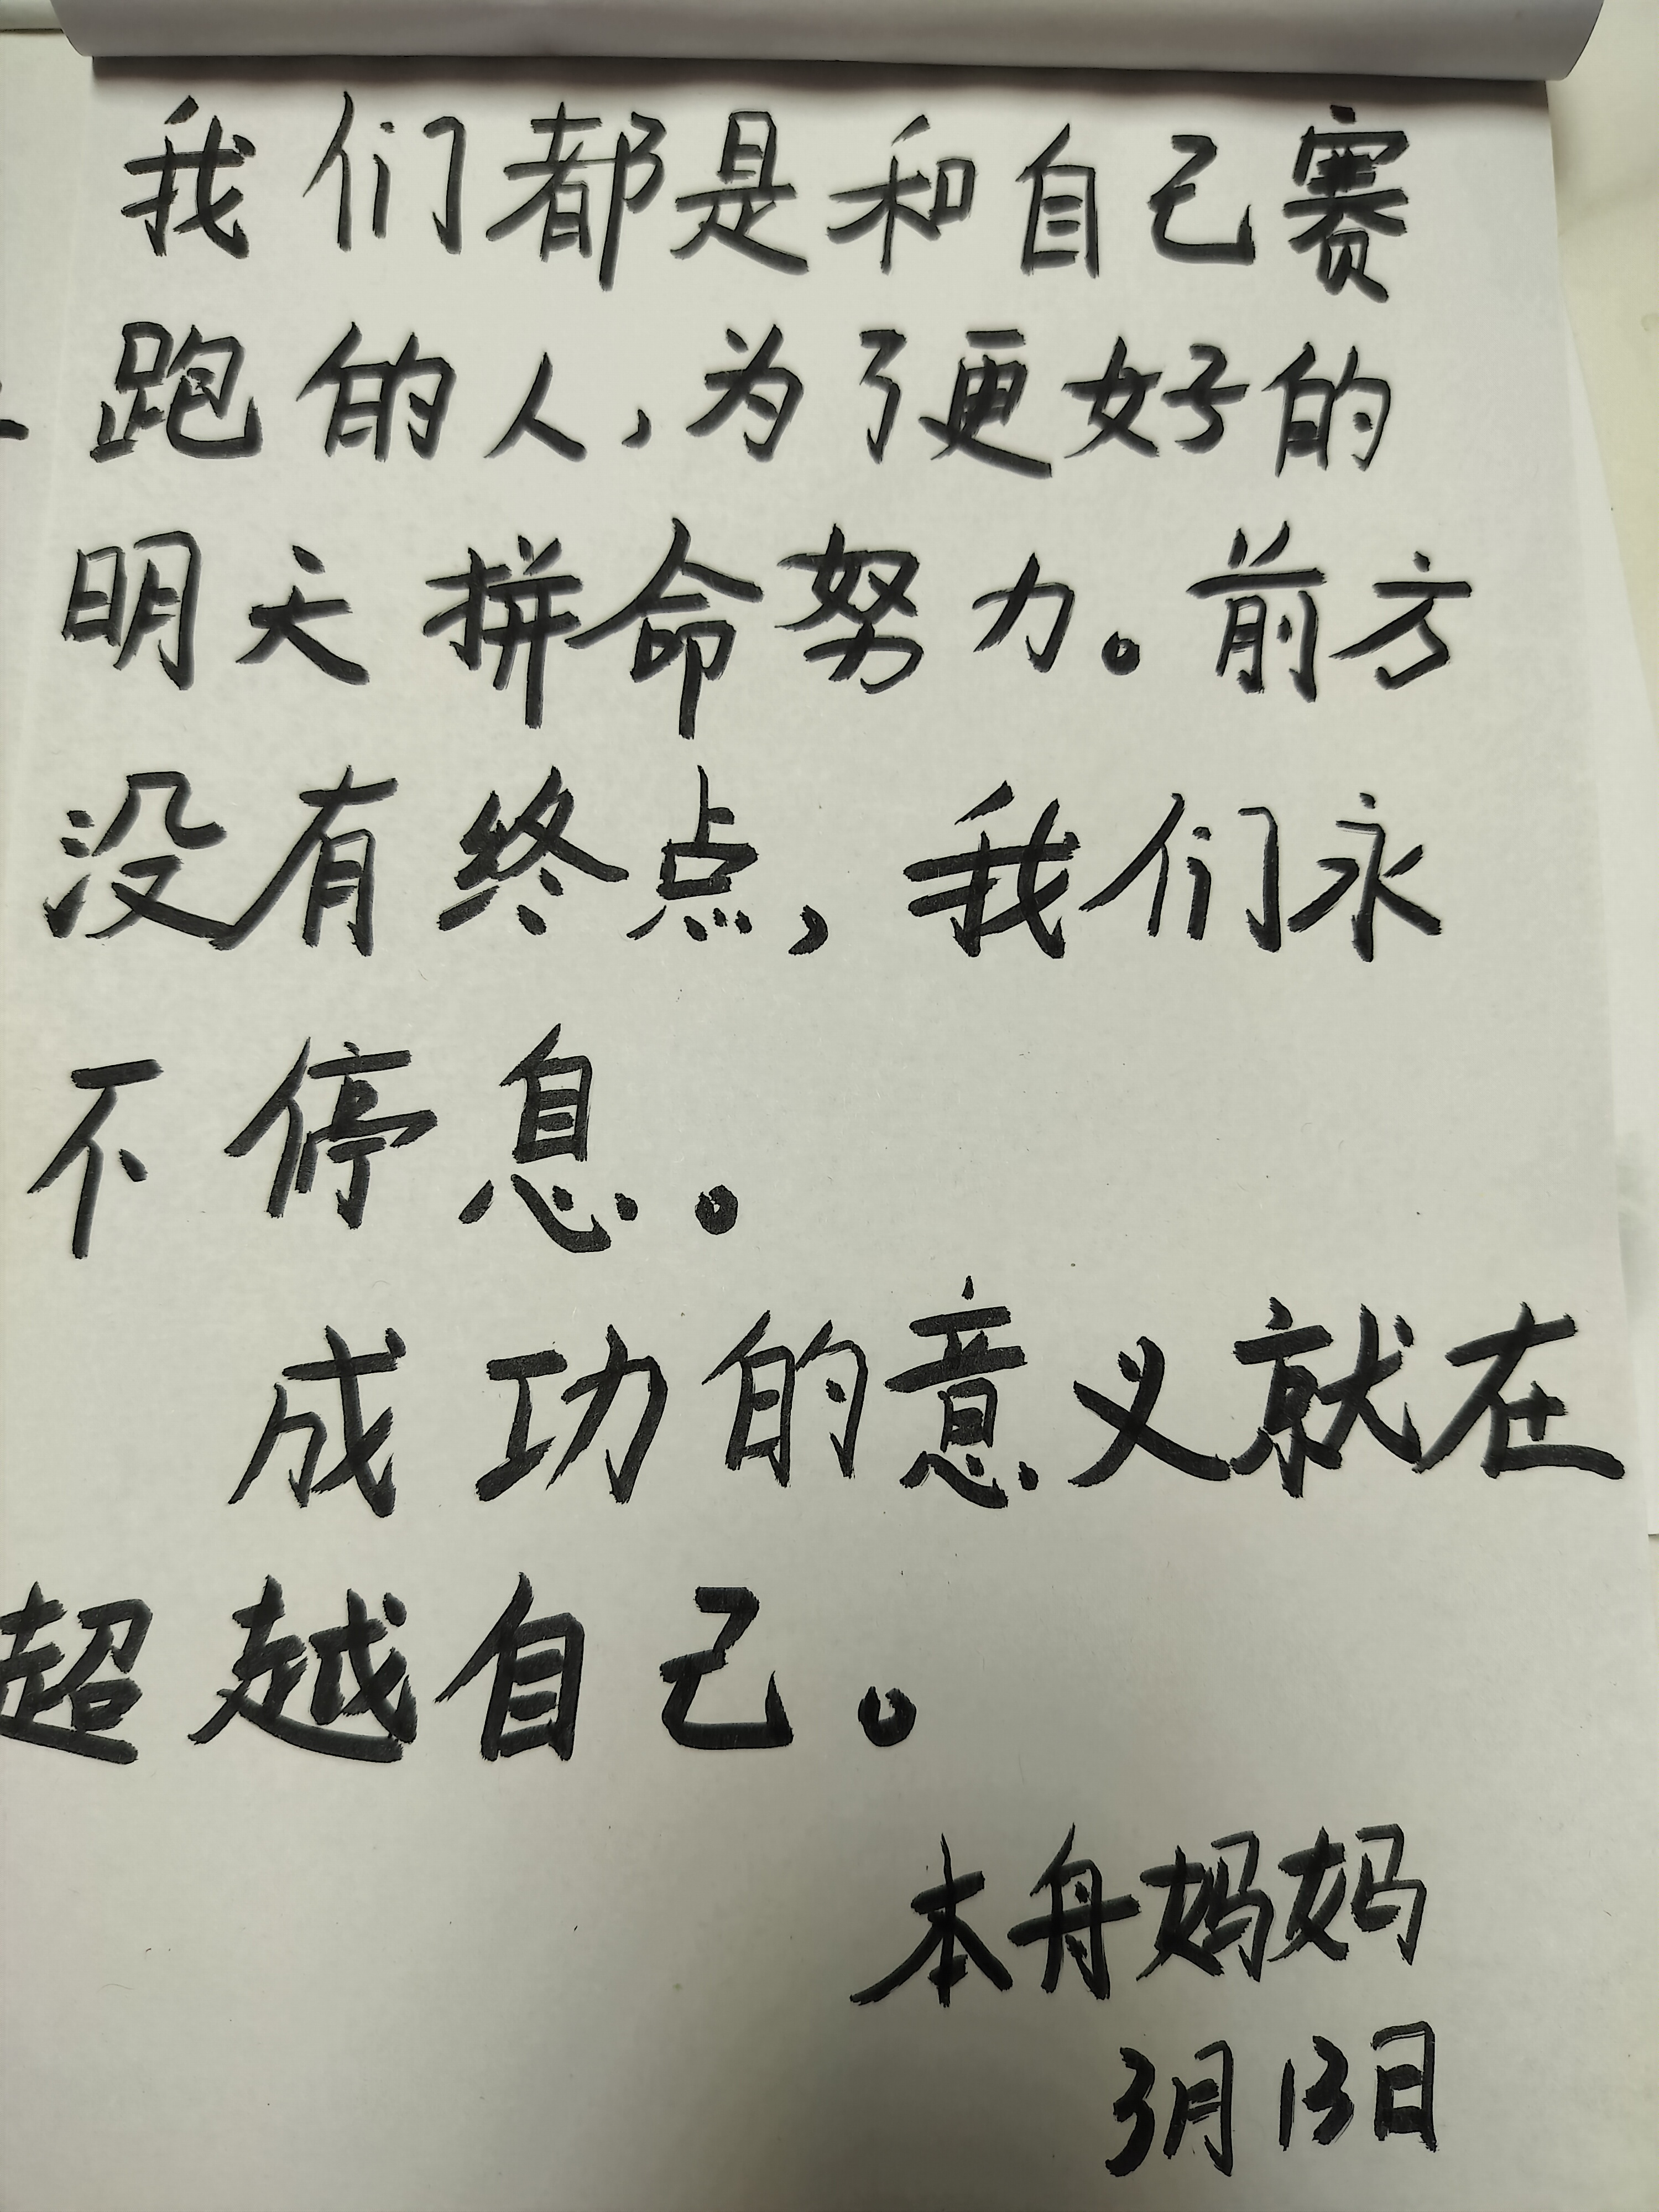 我们都是和自己赛
跑的人,为了更好的
明天拼命努力。前方
没有终点,我们永
不停息。
成功的意义就在
超越自己。
本舟妈妈
3月13日